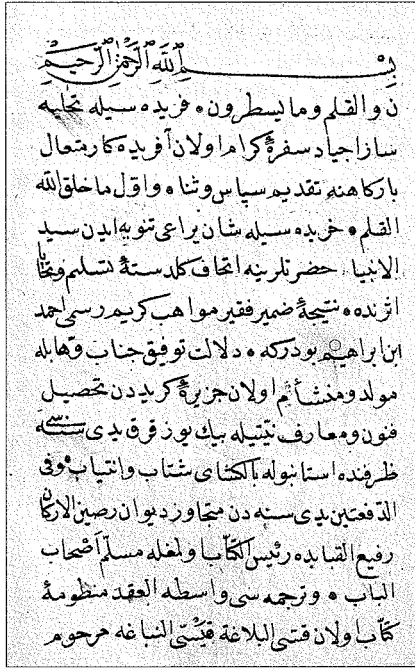 بسم الله الرحمن الرحيم
ن والقلم وما يسطرون خريده سيله تحليه
ساز اجياد سفرۀ كرام اولان آفريده كار متعال
باركاهنه تقديم سپاس وثنا واول ما خلق الله
القلم خريده سيله شان يراعى تنويه ايدن سيد
الانبيا حضرتلرينه اتحاف كلدستۀ تسليم
اثرنده نتيجۀ ضمير فقير مواهب كريم رسمى احمد
ابن ابراهيم بودركه دلالت توفيق جناب وهابله
مولد ومنشائم اولان جزيرۀ كريددن تحصيل
فنون ومعارف نيتيله بيك يوز قرق يدى سنه سى
ظرفنده استانبوله بالكشاى شتاب وانتياب وفى
الدفعتين يدى سنه دن متجاوز ديوان رصين الاركان
رفيع القبابده رئيس الكتاب اولمغله مسلم اصحاب
الباب وترجمه سى واسطه العقد منظومۀ
كتاب اولان قتى البلاغة النباغه مرحوم